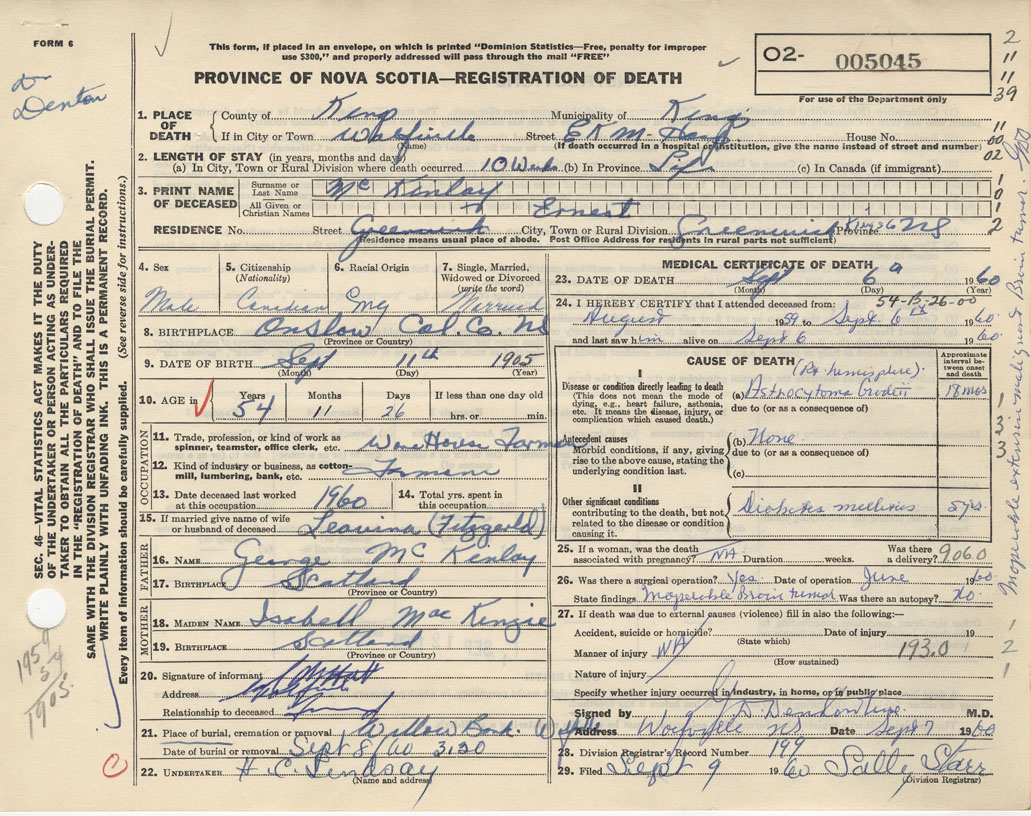 FORM 6
Dr Denton
This form, if placed in an envelope, on which is printed "Dominion Statistics—Free, penalty for improper
use $300," and properly addressed will pass through the mail "FREE"
PROVINCE OF NOVA SCOTIA—REGISTRATION OF DEATH
02- 005045
For use of the Department only
2
11
11
39
11
00
02
1. PLACE OF DEATH
County of Kings Municipality of Kings
If in City or Town Wolfville Street E K M House No.
(Name) (If death occurred in a hospital or institution, give the name instead of street and number)
2. LENGTH OF STAY (in years, months and days)
(a) In City, Town or Rural Division where death occurred 10 Weeks (b) In Province Life (c) In Canada (if immigrant)
3. PRINT NAME OF DECEASED
Surname or Last Name Mc Kinlay
All Given or Christian Names Ernest
1
0
1
2
RESIDENCE No. Street Greenwich City, Town or Rural Division Greenwich Province NS
Residence means usual place of abode. Post Office Address for residents in rural parts not sufficient)
4. Sex Male
5. Citizenship (Nationality) Canadian
6. Racial Origin Eng
7. Single, Married, Widowed or Divorced (write the word) Married
8. BIRTHPLACE Onslow Col. Co. NS
(Province or Country)
9. DATE OF BIRTH Sept 11th 1905
(Month) (Day) (Year)
10. AGE in Years 54 Months 11 Days 26 If less than one day old
hrs. or min.
OCCUPATION
11. Trade, profession, or kind of work as
spinner, teamster, office clerk, etc. Farmer
12. Kind of industry or business, as cotton-
mill, lumbering, bank, etc. Farming
13. Date deceased last worked
at this occupation. 1960
14. Total yrs. spent in
this occupation.
15. If married give name of wife
or husband of deceased Leavina (Fitzgerald)
FATHER
16. NAME George Mc Kinlay
17. BIRTHPLACE Scotland
(Province or Country)
MOTHER
18. MAIDEN NAME Isabell MacKenzie
19. BIRTHPLACE Scotland
(Province or Country)
20. Signature of informant
Address Wolfville
Relationship to deceased
21. Place of burial, cremation or removal Willow Bank Wolfville
Date of burial or removal Sept 8/60 3.30
22. UNDERTAKER H. C. Lindsay
(Name and address)
MEDICAL CERTIFICATE OF DEATH
23. DATE OF DEATH Sept 6th 1960
(Month) (Day) (Year)
54-B-26-00
24. I HEREBY CERTIFY that I attended deceased from:
August 1959 to Sept. 6th 1960
and last saw him alive on Sept 6 1960
CAUSE OF DEATH
Approximate interval between onset and death
(Rt. hemisphere).
I
Disease or condition directly leading to death
(This does not mean the mode of
dying, e.g., heart failure, asthenia,
etc. It means the disease, injury, or
complication which caused death.)
(a) Astrocytoma 18 mos
due to (or as a consequence of)
Antecedent causes
Morbid conditions, if any, giving
rise to the above cause, stating the
underlying condition last.
(b) None
due to (or as a consequence of)
(c)
II
Other significant conditions
contributing to the death, but not
related to the disease or condition
causing it.
Diabetes mellitus 5 yrs.
1
3
3
25. If a woman, was the death
associated with pregnancy? NA Duration weeks. Was there a delivery? 9060
26. Was there a surgical operation? Yes. Date of operation June 1960
State findings Inoperable Brain tumor Was there an autopsy? No
27. If death was due to external causes (violence) fill in also the following:—
Accident, suicide or homicide? Date of injury 19
(State which)
Manner of injury NA 193.0
(How sustained)
Nature of injury
Specify whether injury occurred in industry, in home, or in public place
Signed by G D Denton M.D.
Address Wolfville NS Date Sept 7 1960
28. Division Registrar's Record Number 199
29. Filed Sept 9 1960 Sally Starr
(Division Registrar)
1
2
1
Inoperable extensive malignant Brain tumor.
SEC. 46—VITAL STATISTICS ACT MAKES IT THE DUTY
OF THE UNDERTAKER OR PERSON ACTING AS UNDER-
TAKER TO OBTAIN ALL THE PARTICULARS REQUIRED
IN THE "REGISTRATION OF DEATH" AND TO FILE THE
SAME WITH THE DIVISION REGISTRAR WHO SHALL ISSUE THE BURIAL PERMIT.
WRITE PLAINLY WITH UNFADING INK. THIS IS A PERMANENT RECORD.
Every item of information should be carefully supplied. (See reverse side for instructions.)
1959
54
1905